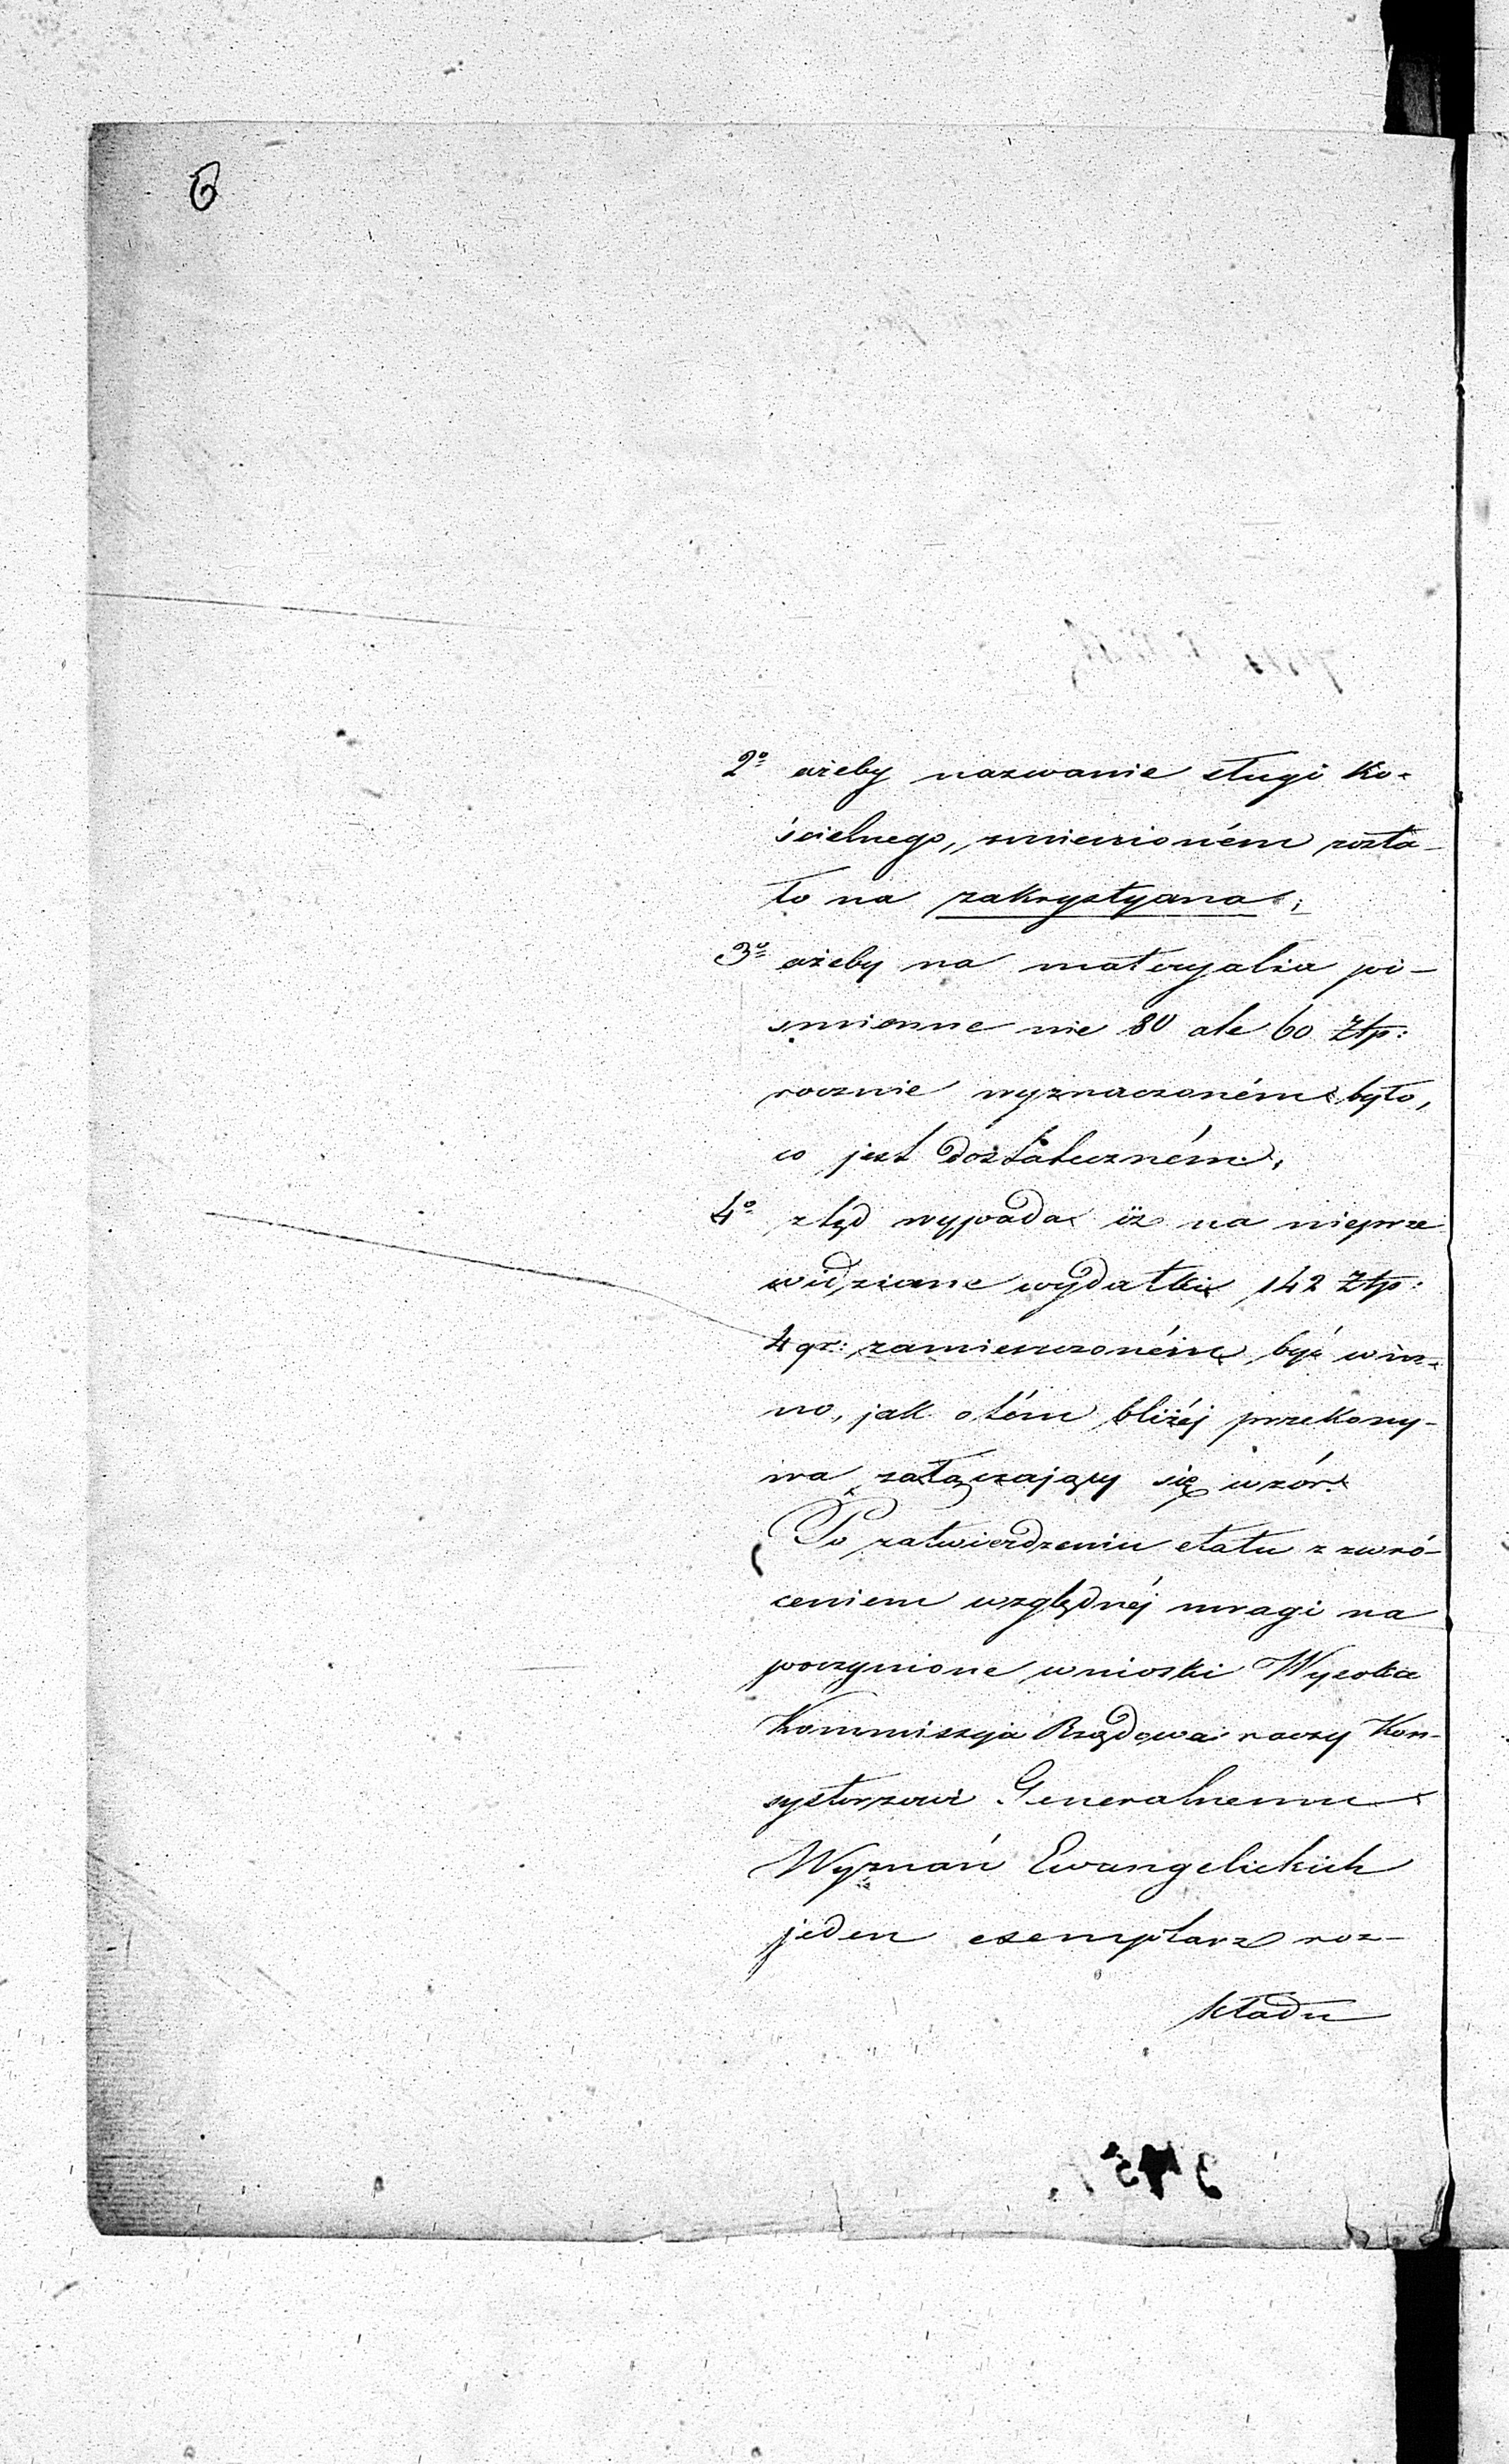 6
2º ażeby nazwanie sługi Ko-
ścielnego, zmienioném zosta-
ło na zakrystyana;
3º ażeby na materyalia pi-
śmienne nie 80 ale 60 Złp:
rocznie wyznaczoném było,
co jest dostateczném;
4º ztąd wypada iż na nieprze
widziane wydatki 142 Złp:
4 gr: zamieszczoném być win-
no, jak o tém bliżéj przekony-
wa załączający się wzór.
Po zatwierdzeniu etatu z zwró-
ceniem względnéj uwagi na
poczynione wnioski Wysoka
Kommissyja Rządowa raczy Kon-
systorzowi Generalnemu
Wyznań Ewangelickich
jeden exemplarz roz-
kładu